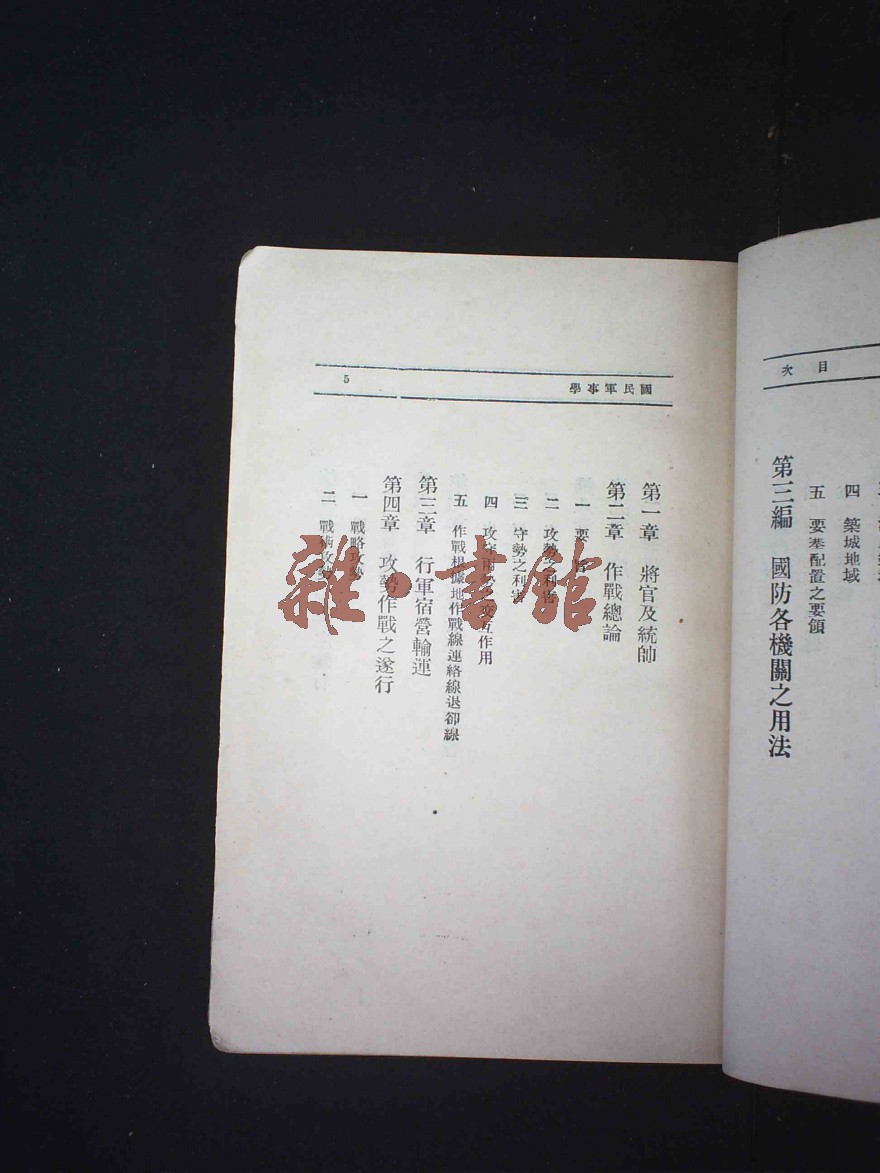 目次
四 築城地域
五 要塞配置之要領
第三編 國防各機關之用法
國民軍事學
5
第一章 將官及統帥
第二章 作戰總論
一 要旨
二 攻勢之利害
三 守勢之利害
四 攻守兩勢之交互作用
五 作戰根據地作戰線連絡線退卻線
第三章 行軍宿營輸運
第四章 攻勢作戰之遂行
一 戰略攻勢
二 戰術攻勢
雜·書館